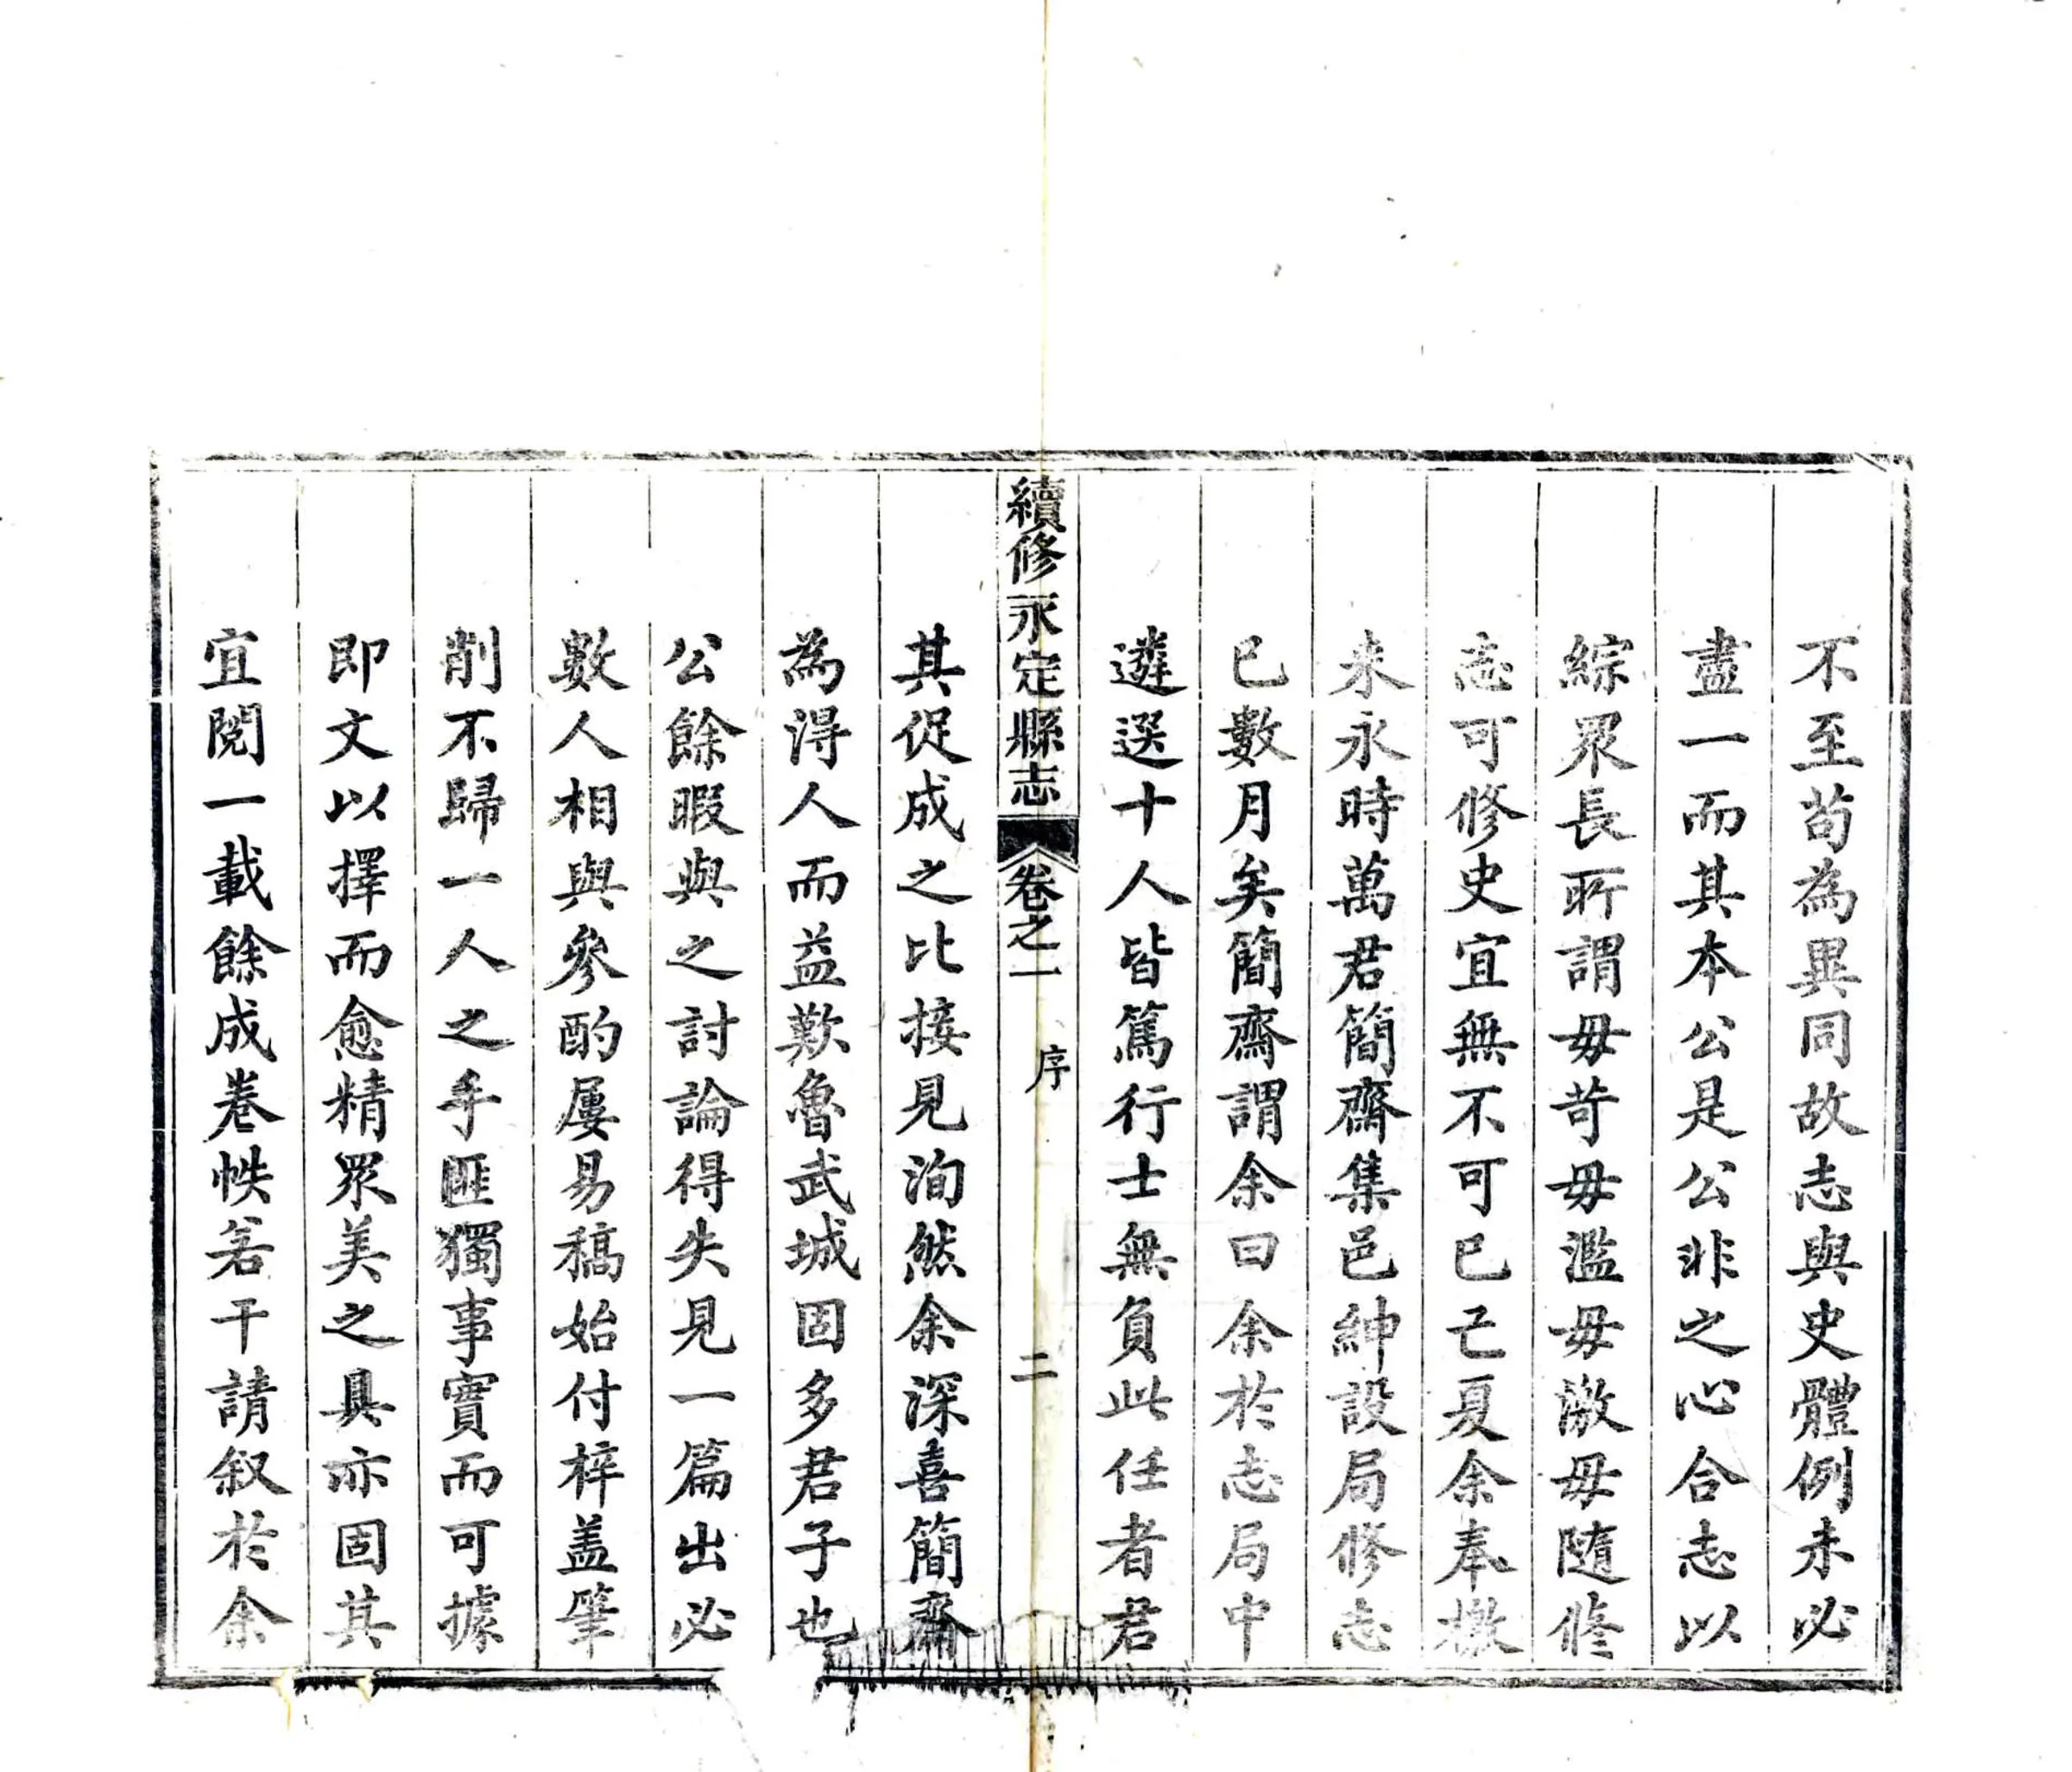 不至苟為異同故志與史體例未必
盡一而其本公是公非之心合志以
綜眾長所謂毋苛毋濫毋激毋隨修
志可修史宜無不可已己夏余奉檄
来永時萬君簡齋集邑紳設局修志
已數月矣簡齋謂余曰余於志局中
遴選十人皆篤行士無負此任者君
續修永定縣志 卷之一 序 二
其促成之比接見洵然余深喜簡齋
為得人而益歎魯武城固多君子也
公餘暇與之討論得失見一篇出必
數人相與參酌屢易稿始付梓盖筆
削不歸一人之手匪獨事實而可據
即文以擇而愈精眾美之具亦固其
宜閱一載餘成卷帙若干請叙於余